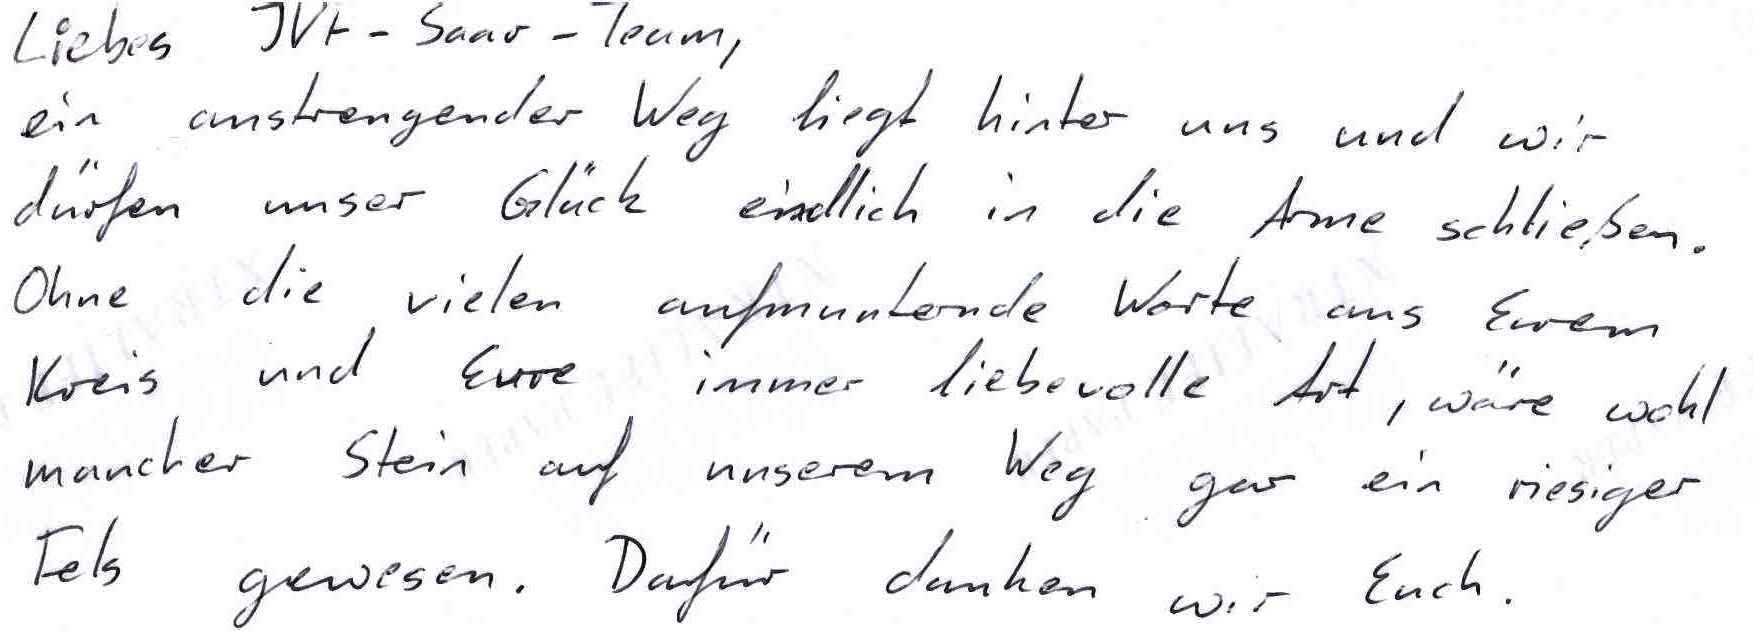 Liebes IVF-Saar-Team,
ein anstrengender Weg liegt hinter uns und wir
dürfen unser Glück endlich in die Arme schließen.
Ohne die vielen aufmunternde Worte aus Eurem
Kreis und Eure immer liebevolle Art, wäre wohl
mancher Stein auf unserem Weg gar ein riesiger
Fels gewesen. Dafür danken wir Euch.